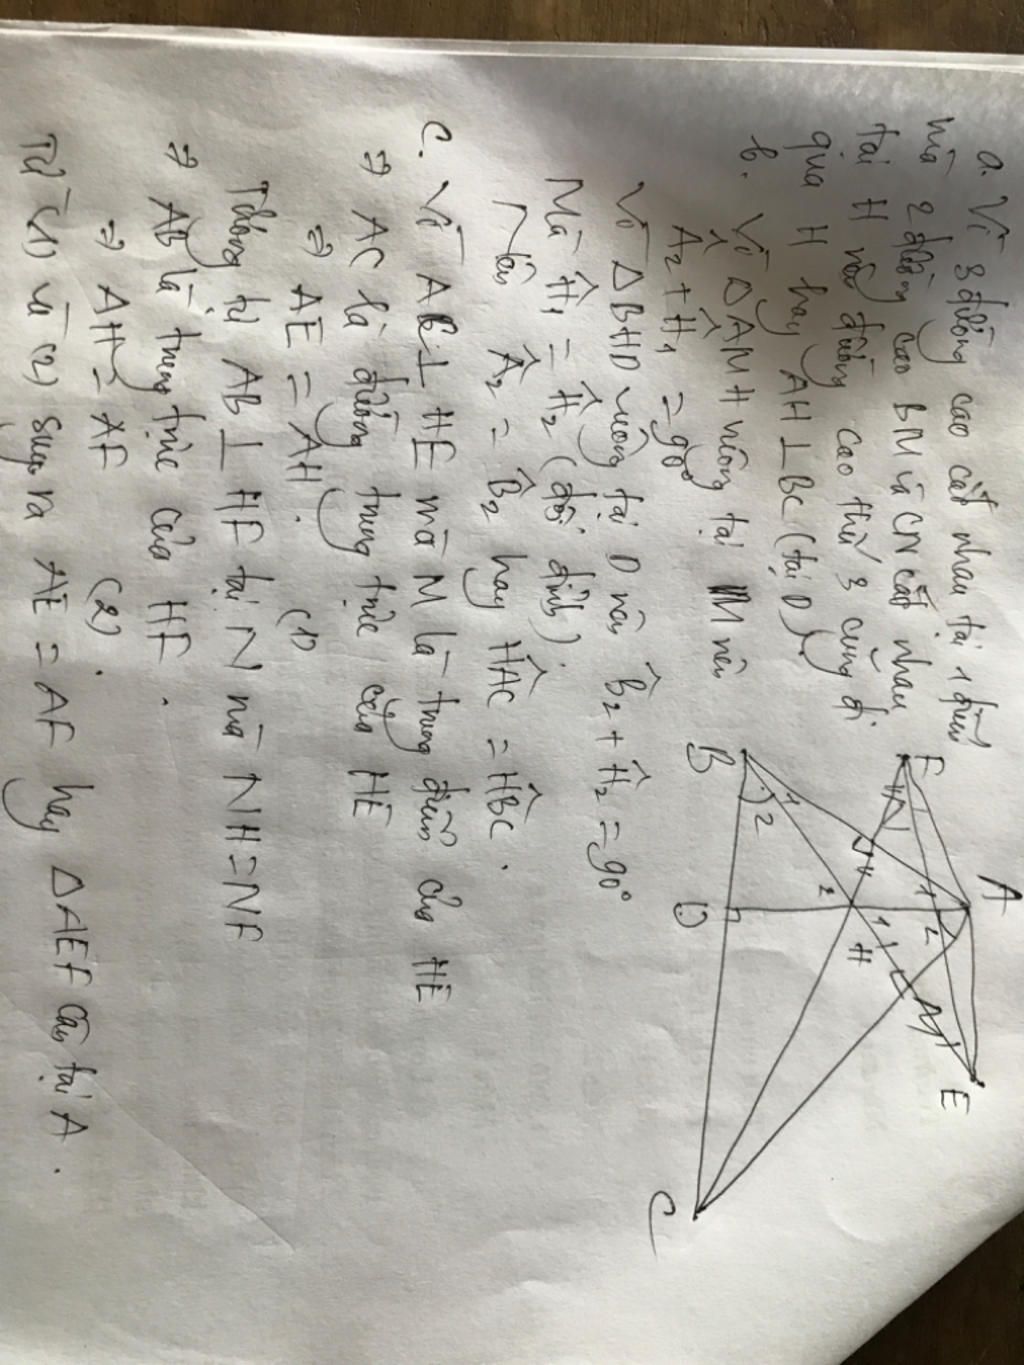 a. Vì 3 đường cao cắt nhau tại 1 điểm
mà 2 đường cao BM và CN cắt nhau
tại H nên đường cao thứ 3 cũng đi
qua H hay AH ⊥ BC (tại D)
b. Vì ΔAMH vuông tại M nên
Â2 + Ĥ1 = 90°
Vì ΔBHD vuông tại D nên B̂2 + Ĥ2 = 90°
Mà Ĥ1 = Ĥ2 (đối đỉnh)
Nên Â2 = B̂2 hay HÂC = HB̂C.
C. Vì AC ⊥ HE mà M là trung điểm của HE
⇒ AC là đường trung trực của HE
⇒ AE = AH. (1)
Tương tự AB ⊥ HF tại N mà NH = NF
⇒ AB là trung trực của HF.
⇒ AH = AF (2).
Từ (1) và (2) suy ra AE = AF hay ΔAEF cân tại A.
A
F
E
1
2
N
M
H
1
2
B
1
2
D
C